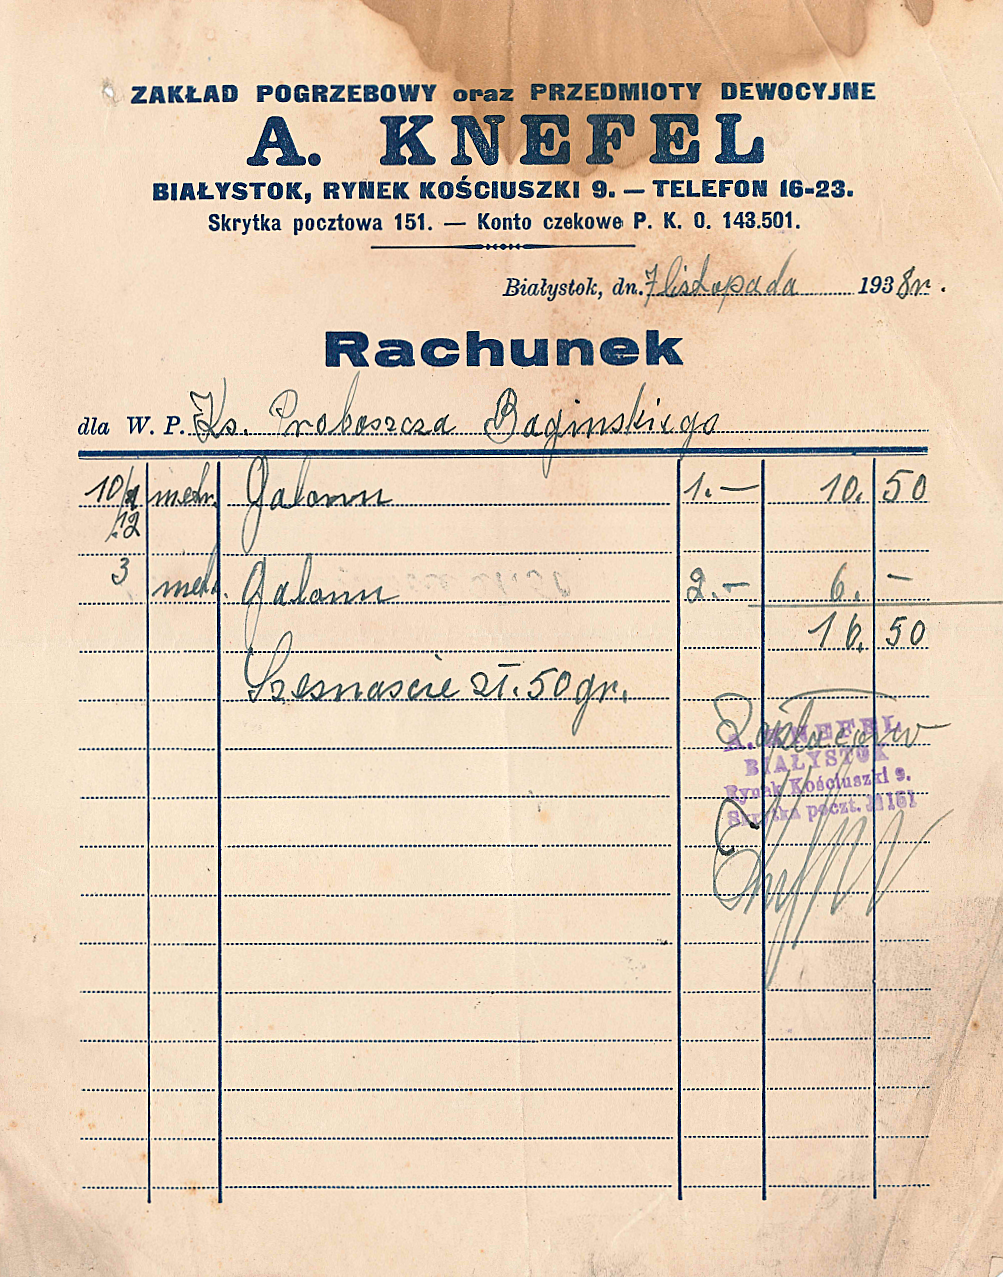 ZAKŁAD POGRZEBOWY oraz PRZEDMIOTY DEWOCYJNE
A. KNEFEL
BIAŁYSTOK, RYNEK KOŚCIUSZKI 9. — TELEFON 16-23.
Skrytka pocztowa 151. — Konto czekowe P. K. O. 143.501.
Białystok, dn. 7 listopada 1938 r.
Rachunek
dla W. P. Ks. Proboszcza Baginskiego
10 1/2 metr. Galonu 1.— 10. 50
3 metr. Galonu 2.— 6. —
16. 50
Szesnaście zł. 50 gr.
Zapłacono
A. KNEFEL
BIAŁYSTOK
Rynek Kościuszki 9.
Skrytka poczt. № 151